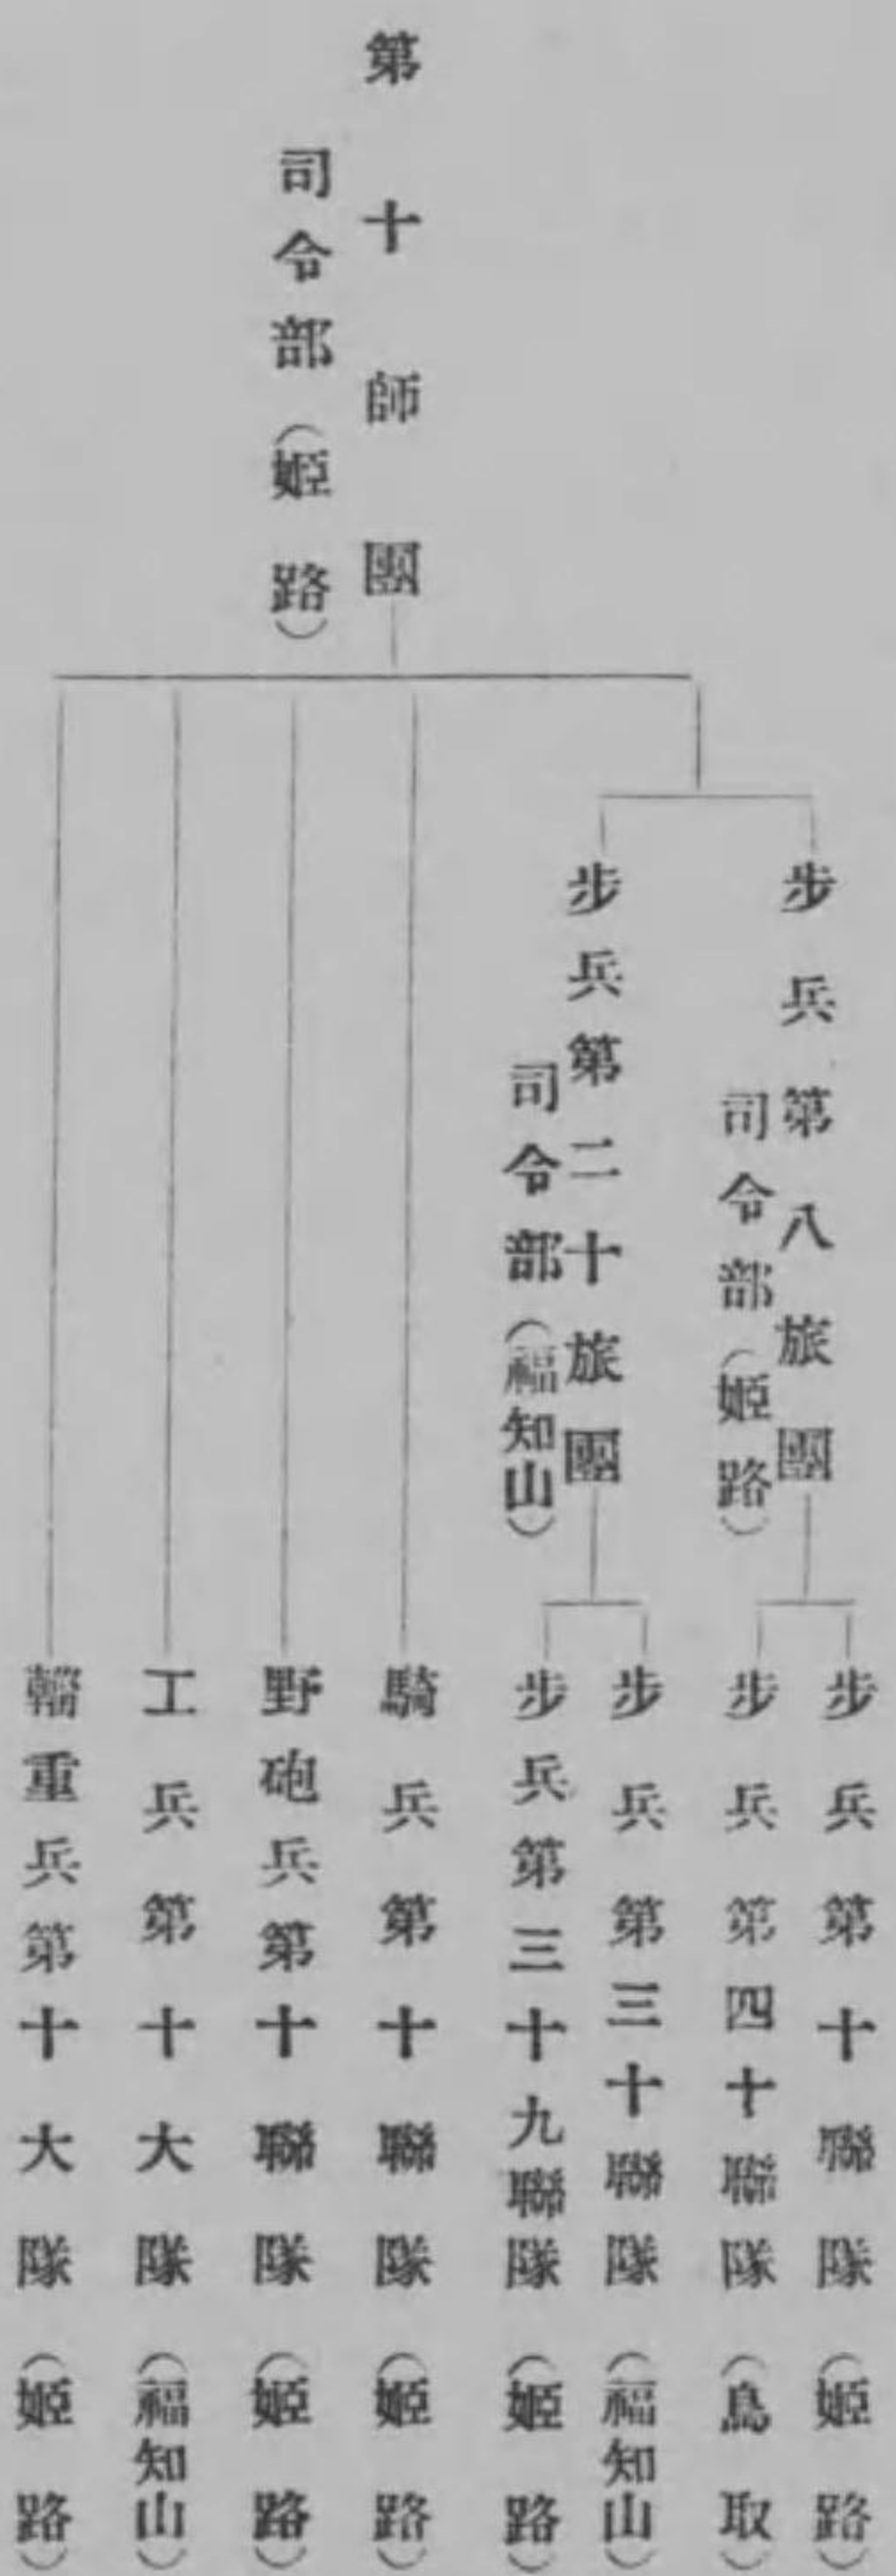 第十師團
司令部（姬路）
步兵第八旅團
司令部（姬路）
步兵第二十旅團
司令部（福知山）
步兵第十聯隊（姬路）
步兵第四十聯隊（鳥取）
步兵第三十聯隊（福知山）
步兵第三十九聯隊（姬路）
騎兵第十聯隊（姬路）
野砲兵第十聯隊（姬路）
工兵第十大隊（福知山）
輜重兵第十大隊（姬路）